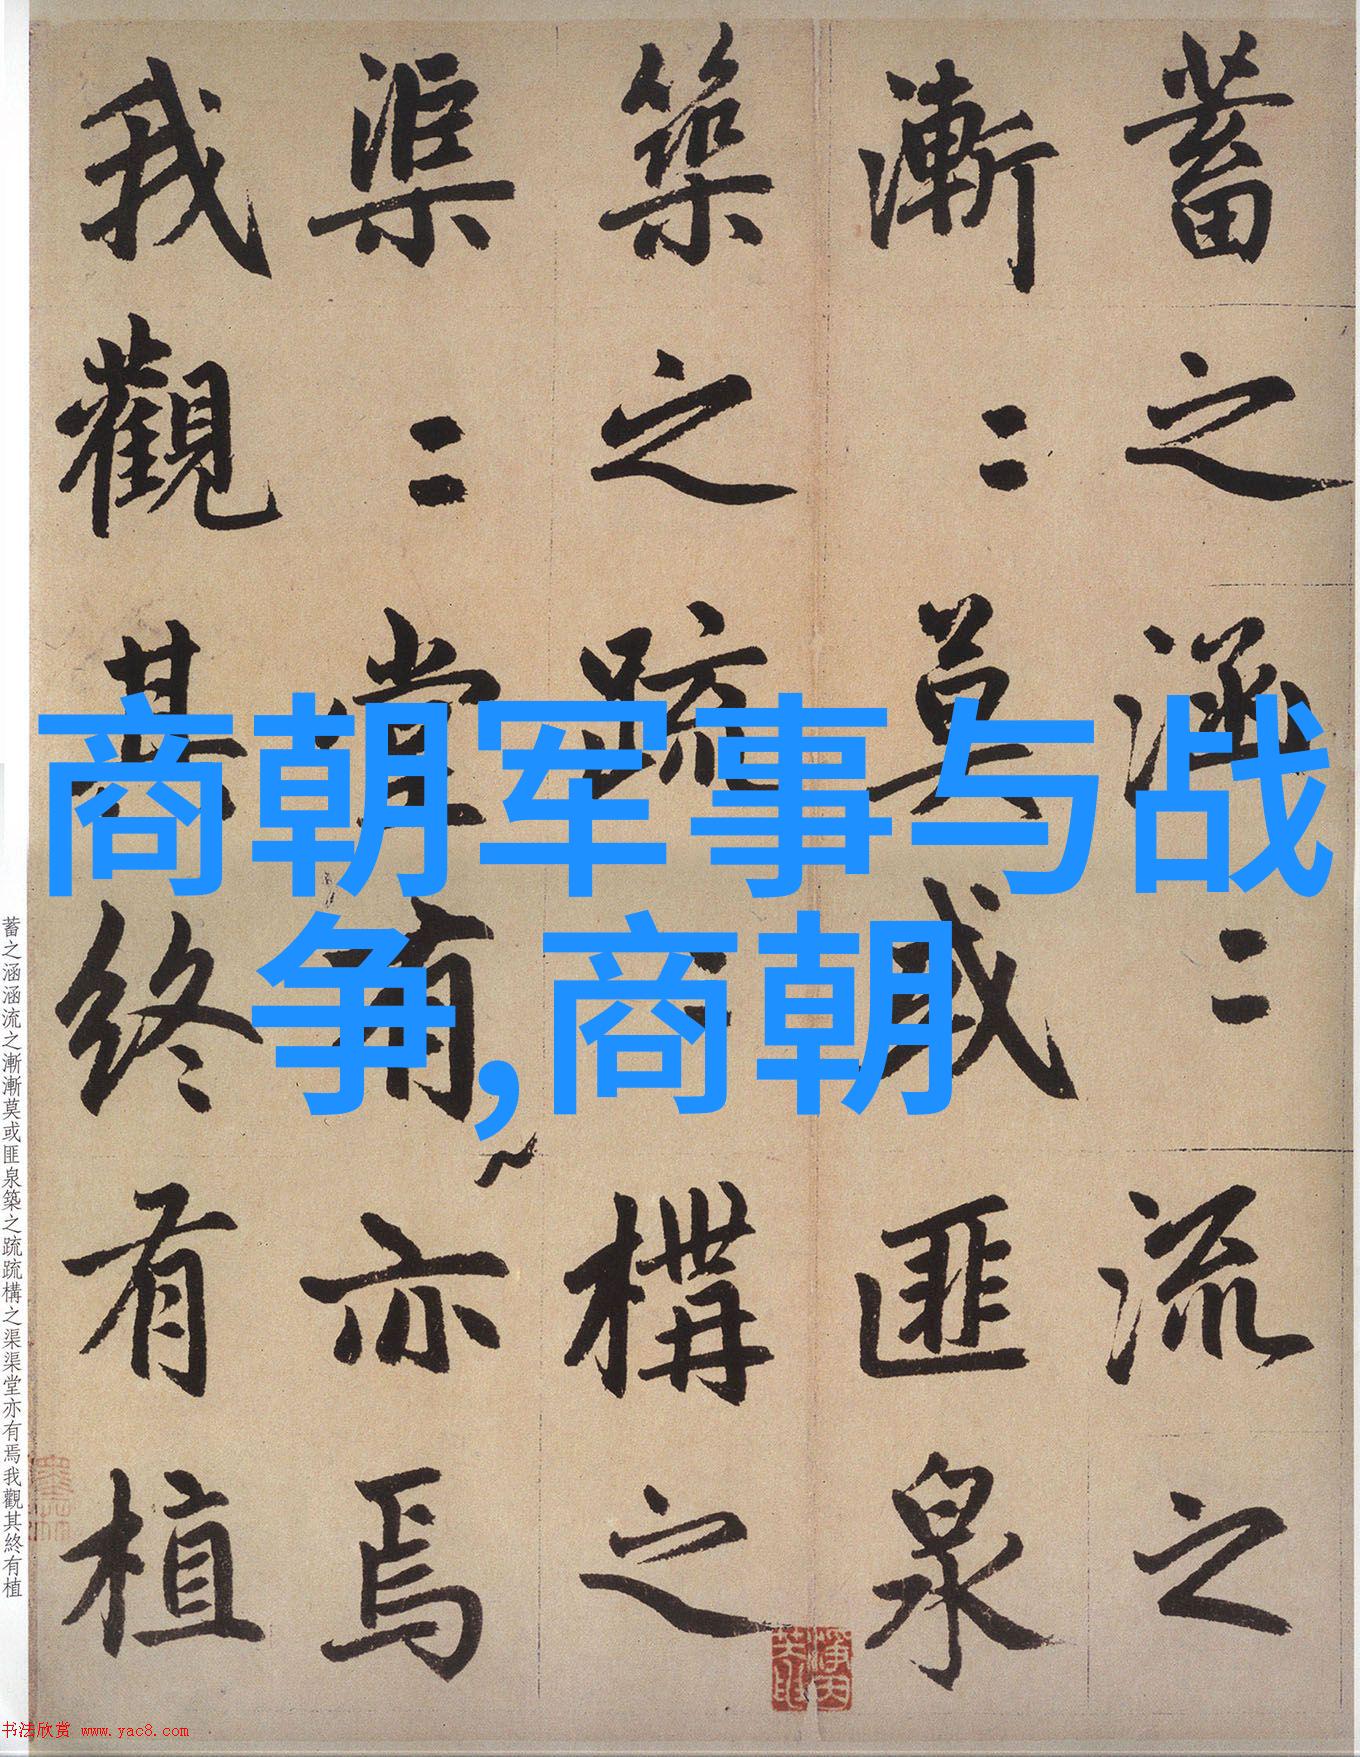 蓄之涵〻流之
漸〻莫或匪泉
築之疏〻構之
渠〻堂有亦焉
我觀其終有植
商朝军事与战
争,商朝
蓄之涵涵流之漸漸莫或匪泉築之疏疏構之渠渠堂亦有焉我觀其終有植
书法欣赏 www.yac8.com